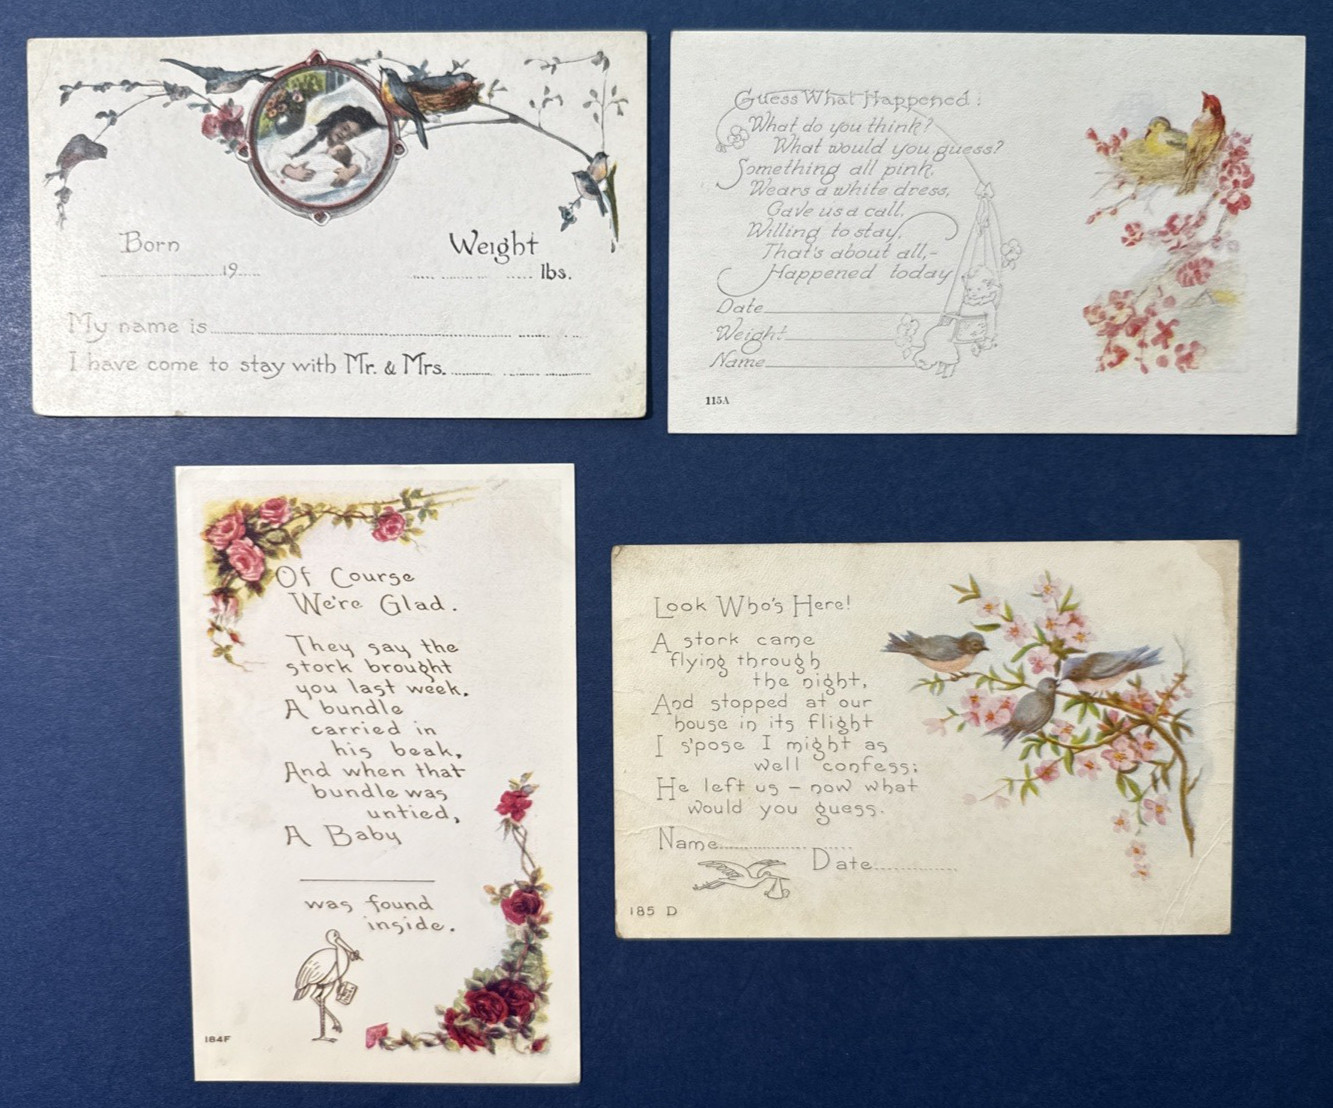 Born
Weight
19
lbs.
My name is
I have come to stay with Mr. & Mrs.
Guess What Happened!
What do you think?
What would you guess?
Something all pink,
Wears a white dress,
Gave us a call,
Willing to stay,
That's about all,-
Happened today
Date
Weight
Name
115A
Of Course
We're Glad.
They say the
stork brought
you last week.
A bundle
carried in
his beak,
And when that
bundle was
untied,
A Baby
was found
inside.
184F
Look Who's Here!
A stork came
flying through
the night,
And stopped at our
house in its flight
I s'pose I might as
well confess;
He left us - now what
would you guess.
Name
Date
185 D